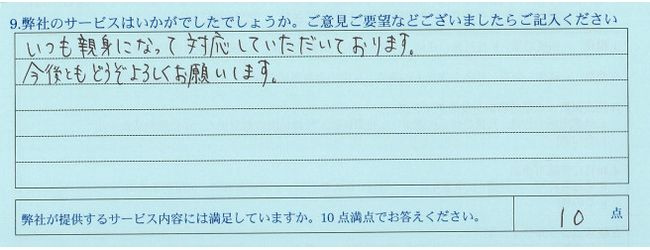 9.弊社のサービスはいかがでしたでしょうか。ご意見ご要望などございましたらご記入ください
いつも親身になって対応していただいております。
今後ともどうぞよろしくお願いします。
弊社が提供するサービス内容には満足していますか。10点満点でお答えください。 10 点